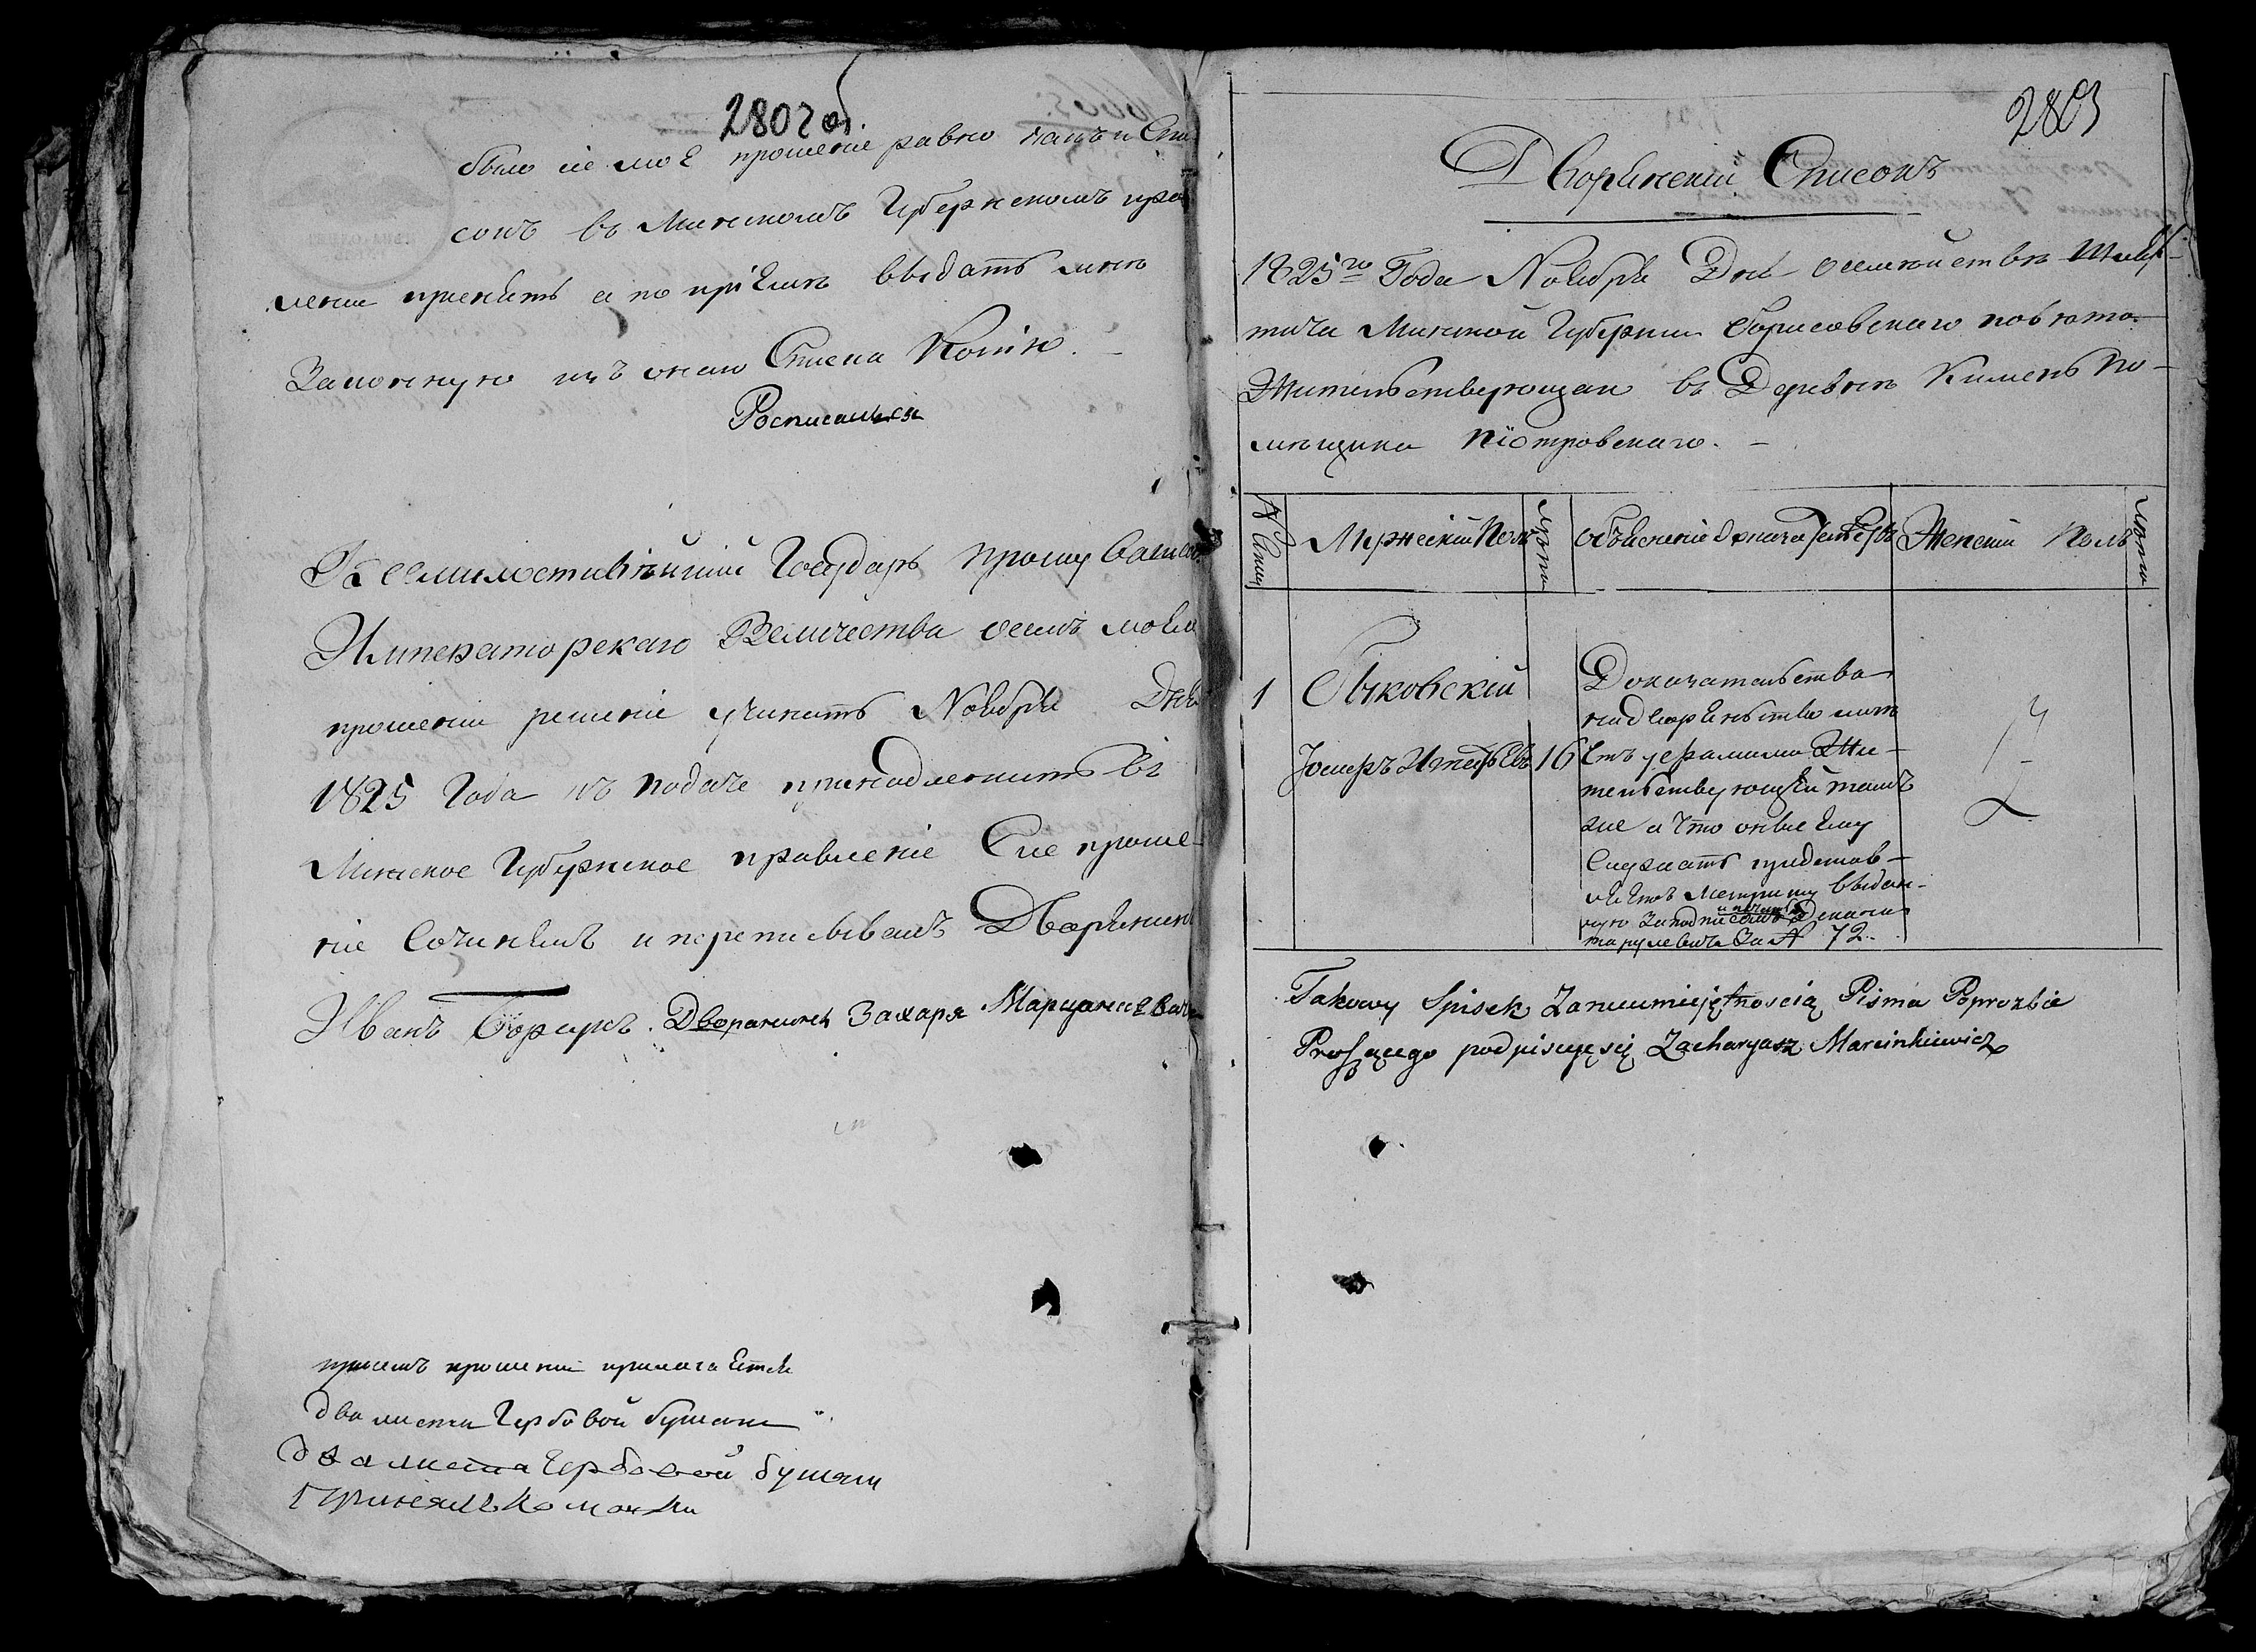 2802 об.
было сіе моё прошеніе равно какъ и Спи
сокъ въ Минскомъ Губернскомъ прав
леніи принять а по пріёмѣ выдать мнѣ
Законную изъ онаго Списка Копію.
Росписался
Всемилостивѣйшій Государь прошу вашего
Императорскаго Величества о семъ моемъ
прошеніи рѣшеніе учинить Ноября Дня
1825 Года къ подаче принадлежитъ въ
Минское Губернское правленіе Сие проше-
ніе Сочинялъ и переписывалъ Дворянинъ
Иванъ. Дворанинъ Захаря Марцинкевичъ
присемъ прошеніи прилагается
два листа Гербовой бумаги
два листа Гербовой бумаги
2803
Дворянскій Списокъ
1825го Года Ноября Дня о семействѣ Шлях-
тича Минской Губерніи Борисовского повѣта
Жительствующаго въ Деревнѣ Кимень По-
мѣщика Піотровскаго. -
№ Семей
Мужескій Полъ
лѣта
объясненіе доказательствъ
Женскій Полъ
лѣта
1
Быковскій
Іосифъ Игнатьевъ
16
Доказательства
на дворянство имѣ
етъ у фамиліи Жи-
тельствующей тамъ
же а что оные ему
Служатъ представ-
ляетъ Метрику выдан-
ную За подписомъ и печатью Декана
За № 72.
Takowy Spisek Zanieumiejętnoscią Pisma Poprozbie
Proszącego podpisuję się Zacharyasz Marcinkiewicz